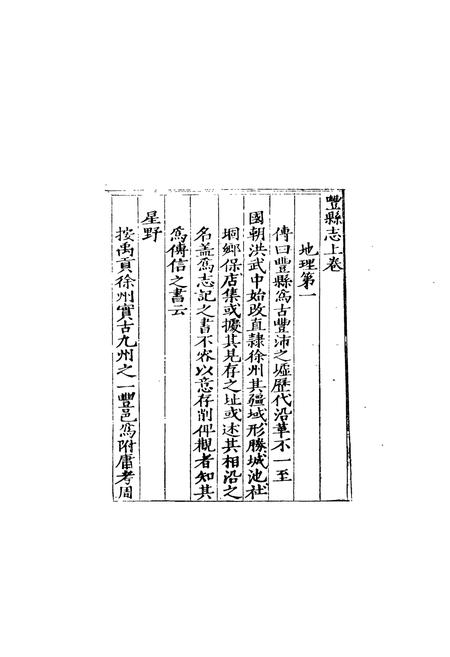 豐縣志上卷
地理第一
傳曰豐縣爲古豐沛之墟歷代沿革不一至
國朝洪武中始改直隸徐州其疆域形勝城池社
垌鄉保店集或據其見存之址或述其相沿之
名盖爲志記之書不容以意存削俾觀者知其
爲傳信之書云
星野
按禹貢徐州實古九州之一豐邑爲附庸考周